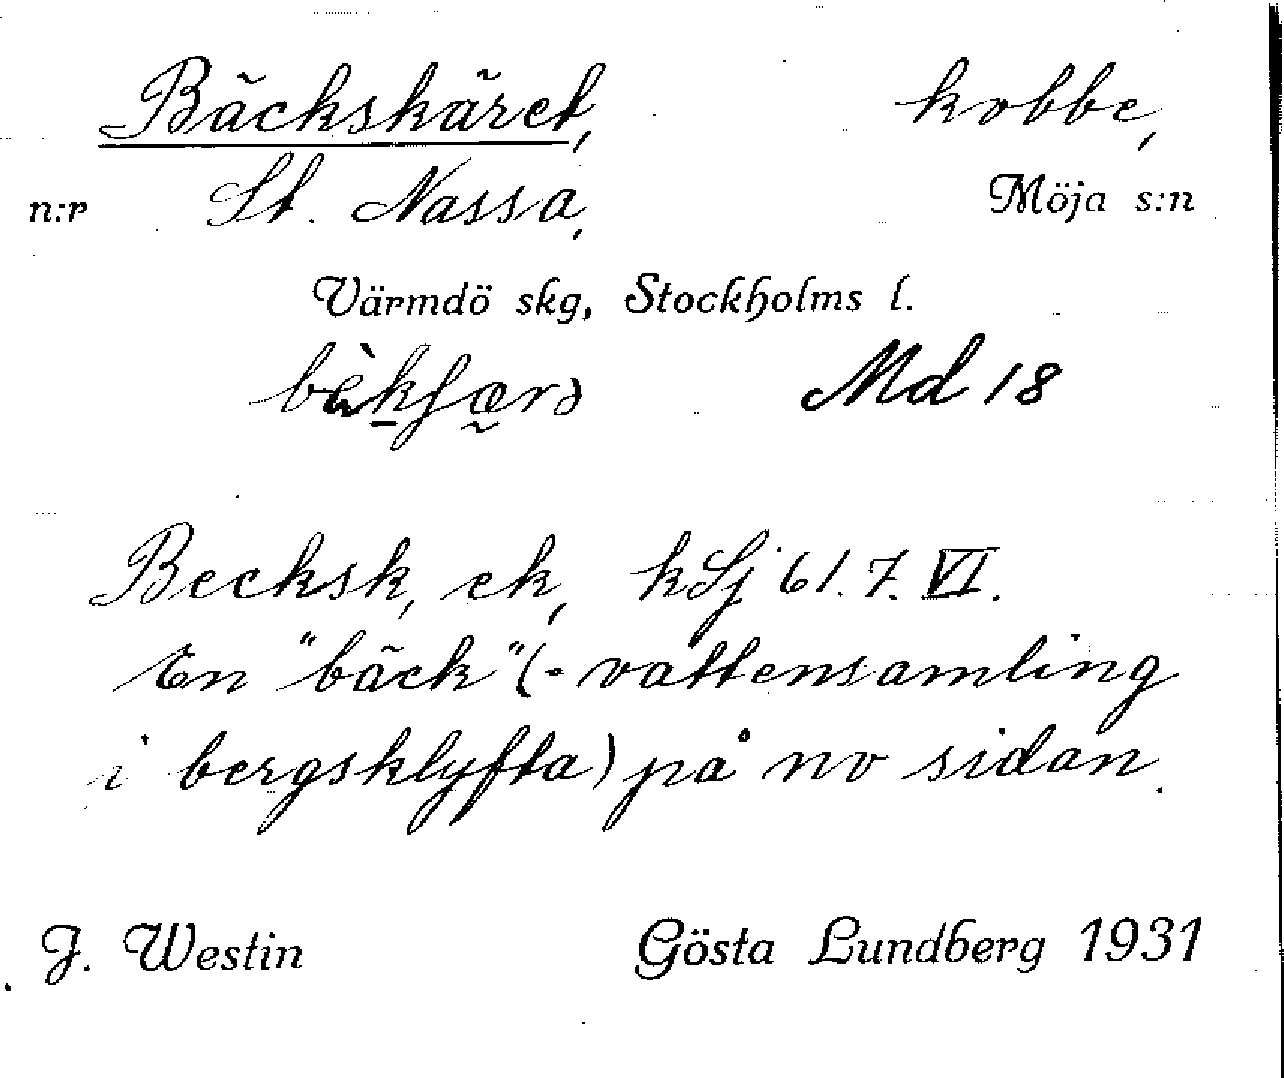 Bäckskäret, kobbe,
n:r St. Nassa, Möja s:n
Värmdö skg, Stockholms l.
Md 18
Becksk, ek, kSj 61.7.VI.
En "bäck" (- vattensamling
i bergsklyfta) på nv sidan.
J. Westin Gösta Lundberg 1931